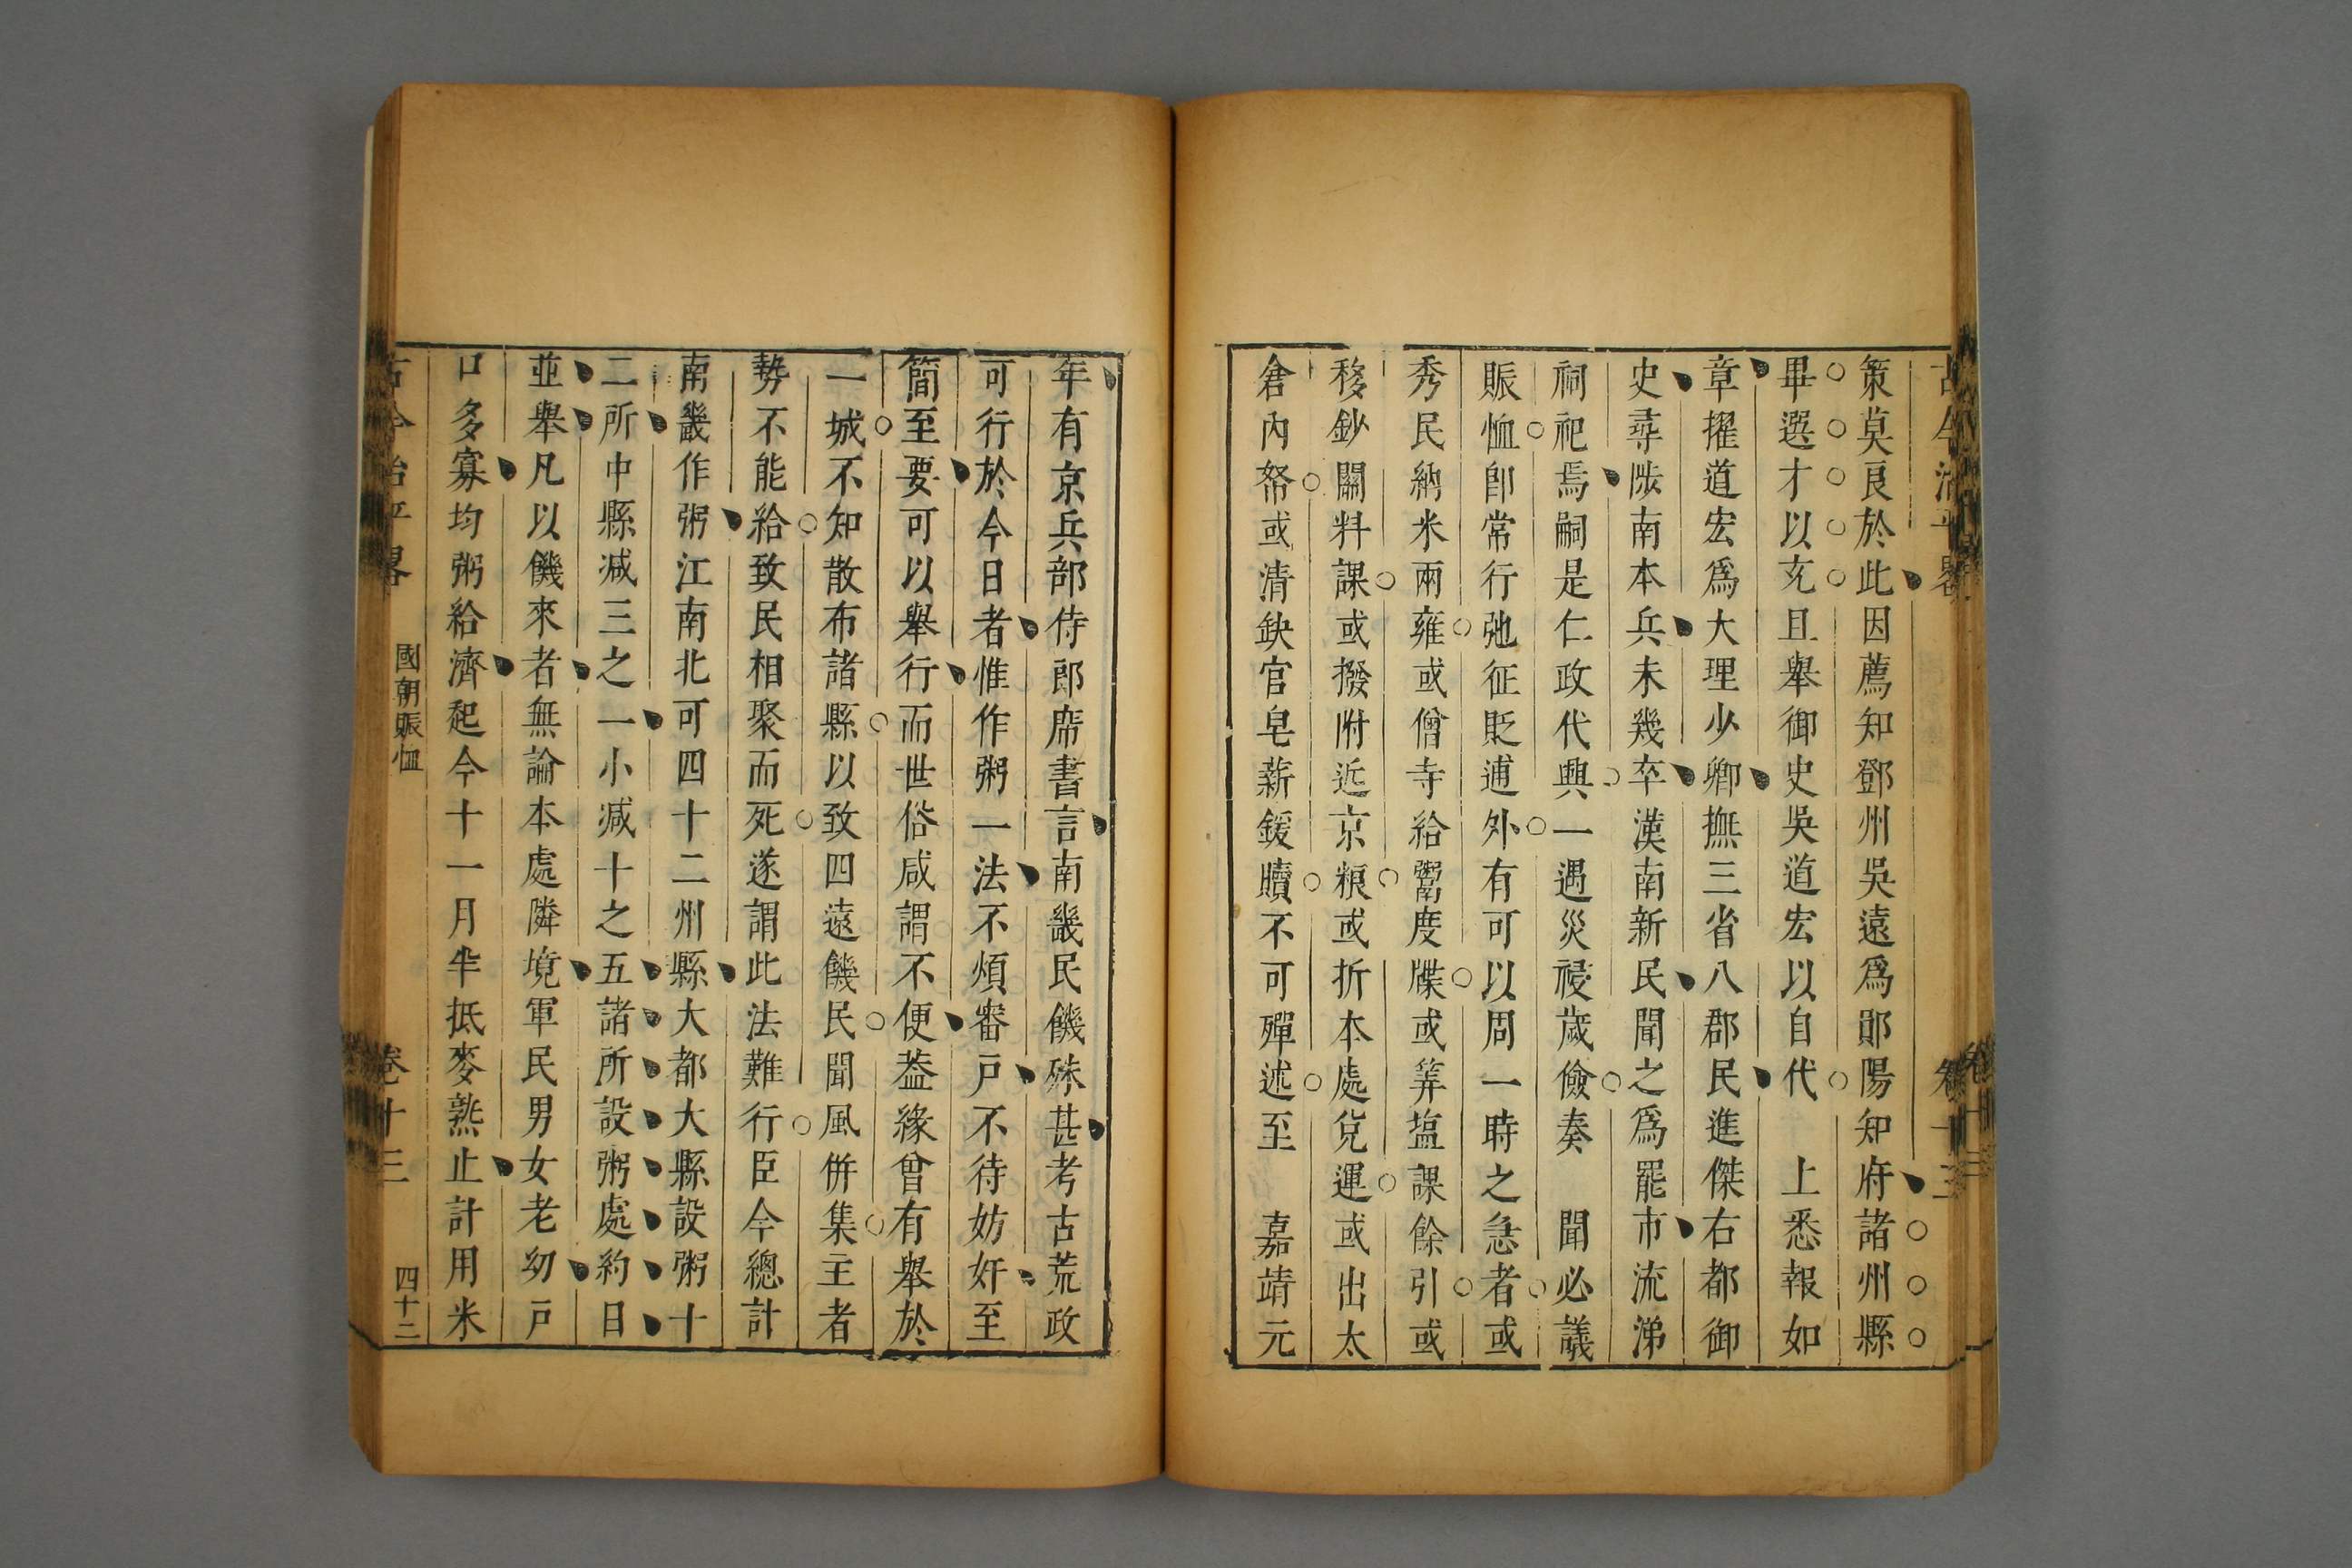 策莫良於此因薦知鄧州吳遠爲鄖陽知府諸州縣
畢選才以充且舉御史吳道宏以自代　上悉報如
章擢道宏爲大理少卿撫三省八郡民進傑右都御
史尋陟南本兵未幾卒漢南新民聞之爲罷市流涕
祠祀焉嗣是仁政代興一遇災祲歲儉奏　聞必議
賑恤卽常行弛征貶逋外有可以周一時之急者或
秀民納米兩雍或僧寺給鬻度牒或筭塩課餘引或
移鈔關料課或撥附近京粮或折本處兌運或出太
倉內帑或清缺官皂薪鍰贖不可殫述至　嘉靖元
年有京兵部侍郎席書言南畿民饑殊甚考古荒政
可行於今日者惟作粥一法不煩審戸不待妨奸至
簡至要可以舉行而世俗咸謂不便葢緣曾有舉於
一城不知散布諸縣以致四遠饑民聞風併集主者
勢不能給致民相聚而死遂謂此法難行臣今總計
南畿作粥江南北可四十二州縣大都大縣設粥十
二所中縣减三之一小减十之五諸所設粥處約日
並舉凡以饑來者無論本處隣境軍民男女老幼戸
口多寡均粥給濟起今十一月半抵麥熟止計用米
古今治平畧　國朝賑恤　卷十三　四十二